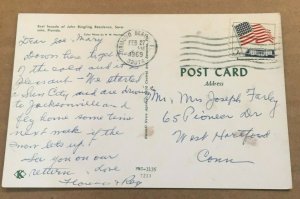 East facade of John Ringling Residence, Sara-
sota, Florida.
Dear Joe, Mary
Down here
of the cold and it is
pleasant - We started
Sun City and are driving
to Jacksonville and
fly home some time
next week if the
snow lets up!
See you on our
return. Love
Florence & Ray
FEB 25
1969
POST CARD
Address
Mr. Mrs Joseph Farley
65 Pioneer Dr
West Hartford
Conn
K